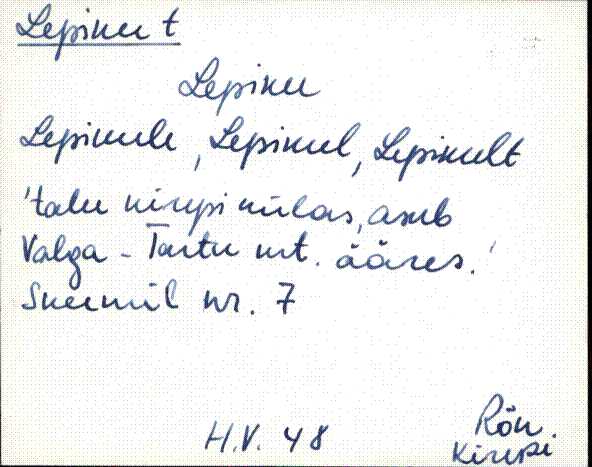 Lepiku t
Lepiku
Lepikule, Lepikul, Lepikult
'talu kirepi külas, asub
Valga - Tartu mt. ääres.'
Skeemil nr. 7
H.V. 48
Rõn.
Kirepi